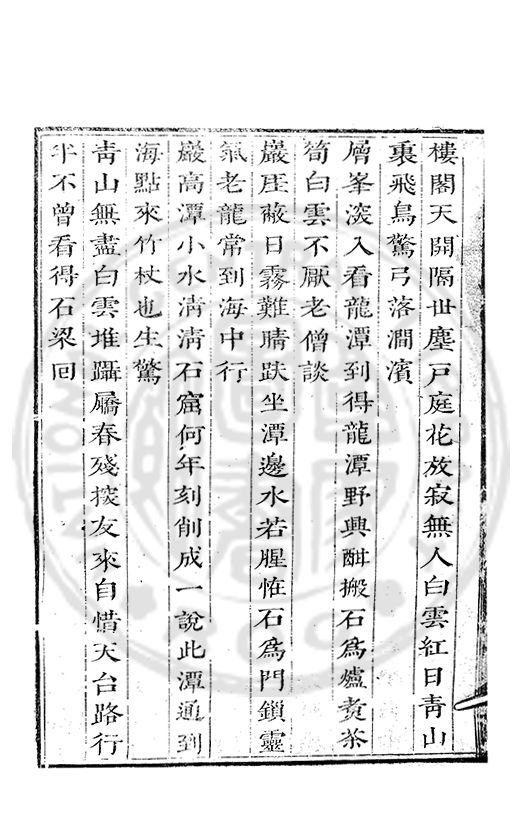 樓閣天開隔世塵戸庭花放寂無人白雲紅日靑山
裏飛鳥驚弓落澗濱
層峯深入看龍潭到得龍潭野興酣搬石爲爐煑茶
筍白雲不厭老僧談
巖厓蔽日霧難晴趺坐潭邊水若腥恠石爲門鎖靈
氣老龍常到海中行
巖高潭小水淸淸石窟何年刻削成一說此潭通到
海點來竹杖也生驚
靑山無盡白雲堆躡屩春殘探友來自惜天台路行
半不曾看得石梁回